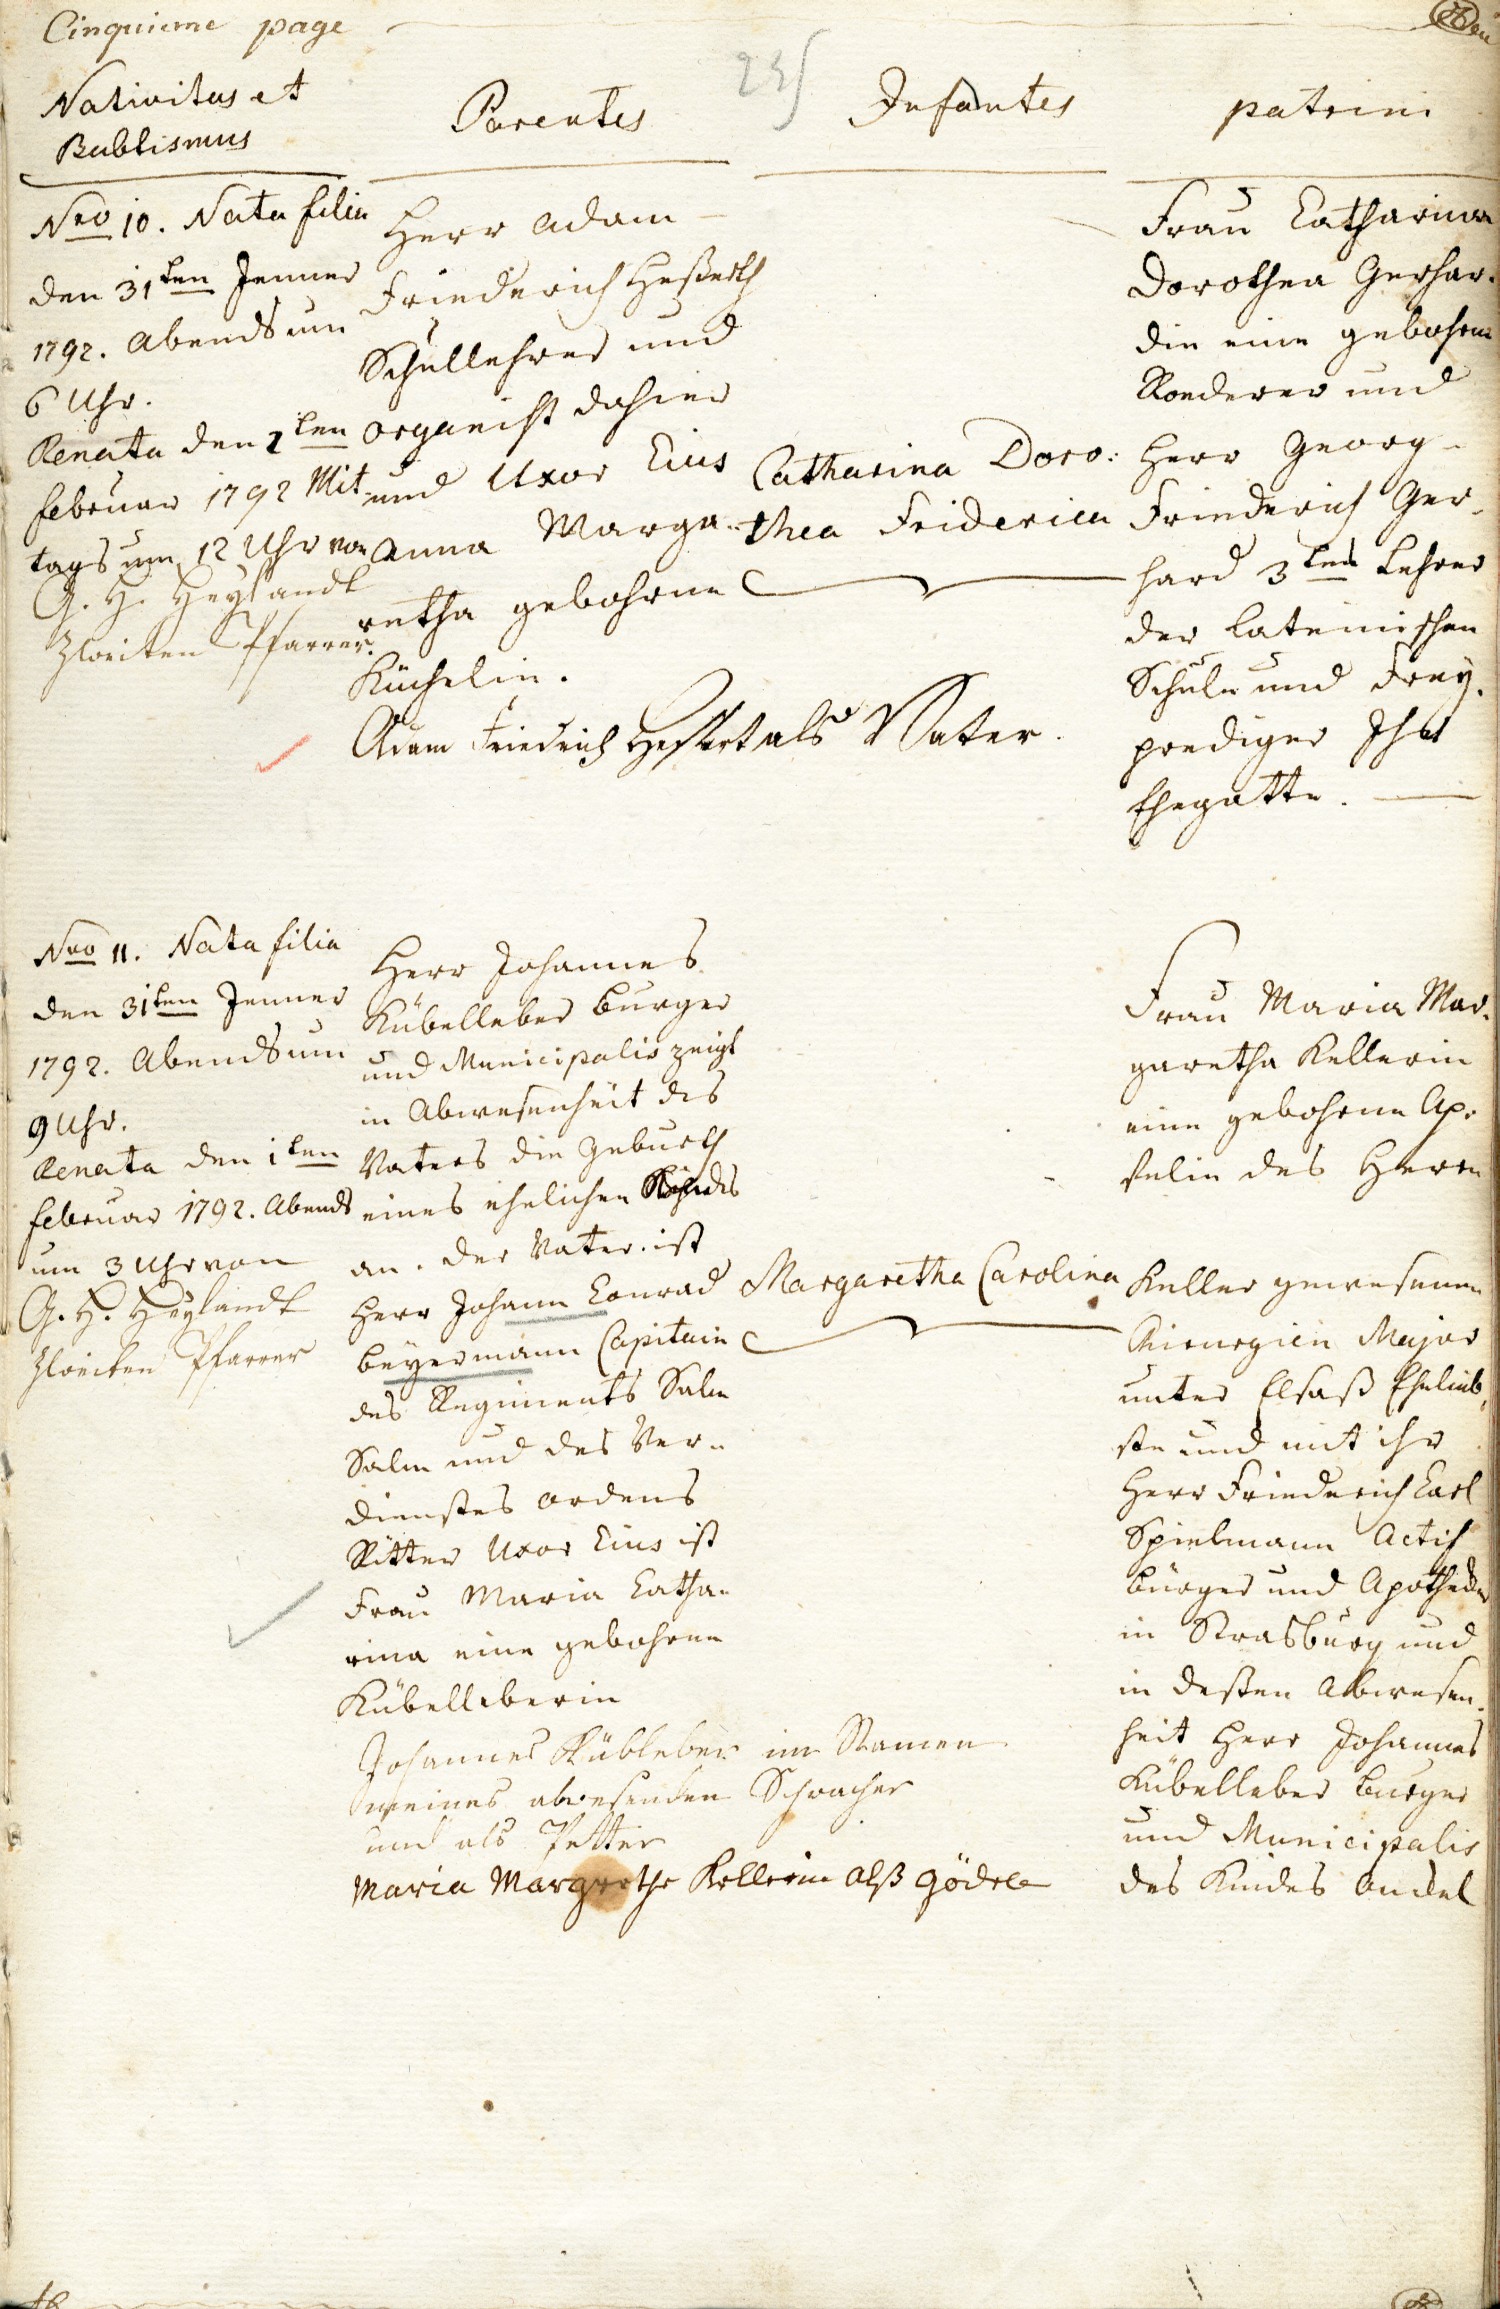 Cinquieme page
235
Nativitas et
Babtismus
Parentes
Infantes
patrini
Nro 10. Nata filia
den 31ten Jenner
1792. Abends um
6 Uhr.
Renata den 2ten
februar 1792 Mit
tags um 12 Uhr von
G. H. Heylandt
Zweiten Pfarrer.
Herr Adam
Friederich Heßerth
Schullehrer und
organist dahier
und Uxor Eius
Anna Marga-
retha gebohrne
Küchelin.
Adam Friedrich Heßert als Vater.
Catharina Doro:
thea Friderica
Frau Catharina
Dorothea Gerhar-
din eine gebohrne
Roederer und
Herr Georg
Friederich Ger-
hard 3ter Lehrer
der lateinischen
Schule und Frey-
prediger Ihr
Ehegatte.
Nro 11. Nata filia
den 31ten Jenner
1792. Abends um
9 Uhr.
Renata den 1ten
februar 1792. Abends
um 3 Uhr von
G. H. Heylandt
Zweiten Pfarrer
Herr Johannes
Kübelleber burger
und Municipalis zeigt
in Abwesenheit des
Vaters die Geburth
eines ehelichen Kindes
an. der Vater ist
Herr Johann Conrad
beyermann Capitain
des Regiments Salm
Salm und des Ver-
dienstes ordens
Ritter Uxor Eius ist
Frau Maria Catha-
rina eine gebohrne
Kübelleberin
Johannes Kübleber im Namen
meines abwesenden Schwacher
und als Petter
Maria Margrethe Kellerin alß gödele
Margaretha Carolina
Frau Maria Mar-
garetha Kellerin
eine gebohrne Ap-
felin des Herrn
Keller gewesenen
Chirurgien Major
unter Elsaß Ehelieb-
ste und mit ihr
Herr Friederich Carl
Spielmann Actif
bürger und Apotheker
in Strasburg und
in deßen Abwesen-
heit Herr Johannes
Kübelleber burger
und Municipalis
des Kindes